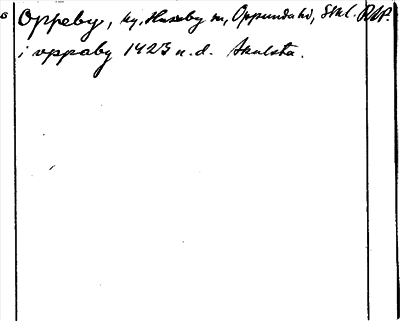 Oppeby, by, Husby m, Oppundahd, Sml. RAP.
i vppaby 1423 u.d. Akulsta.